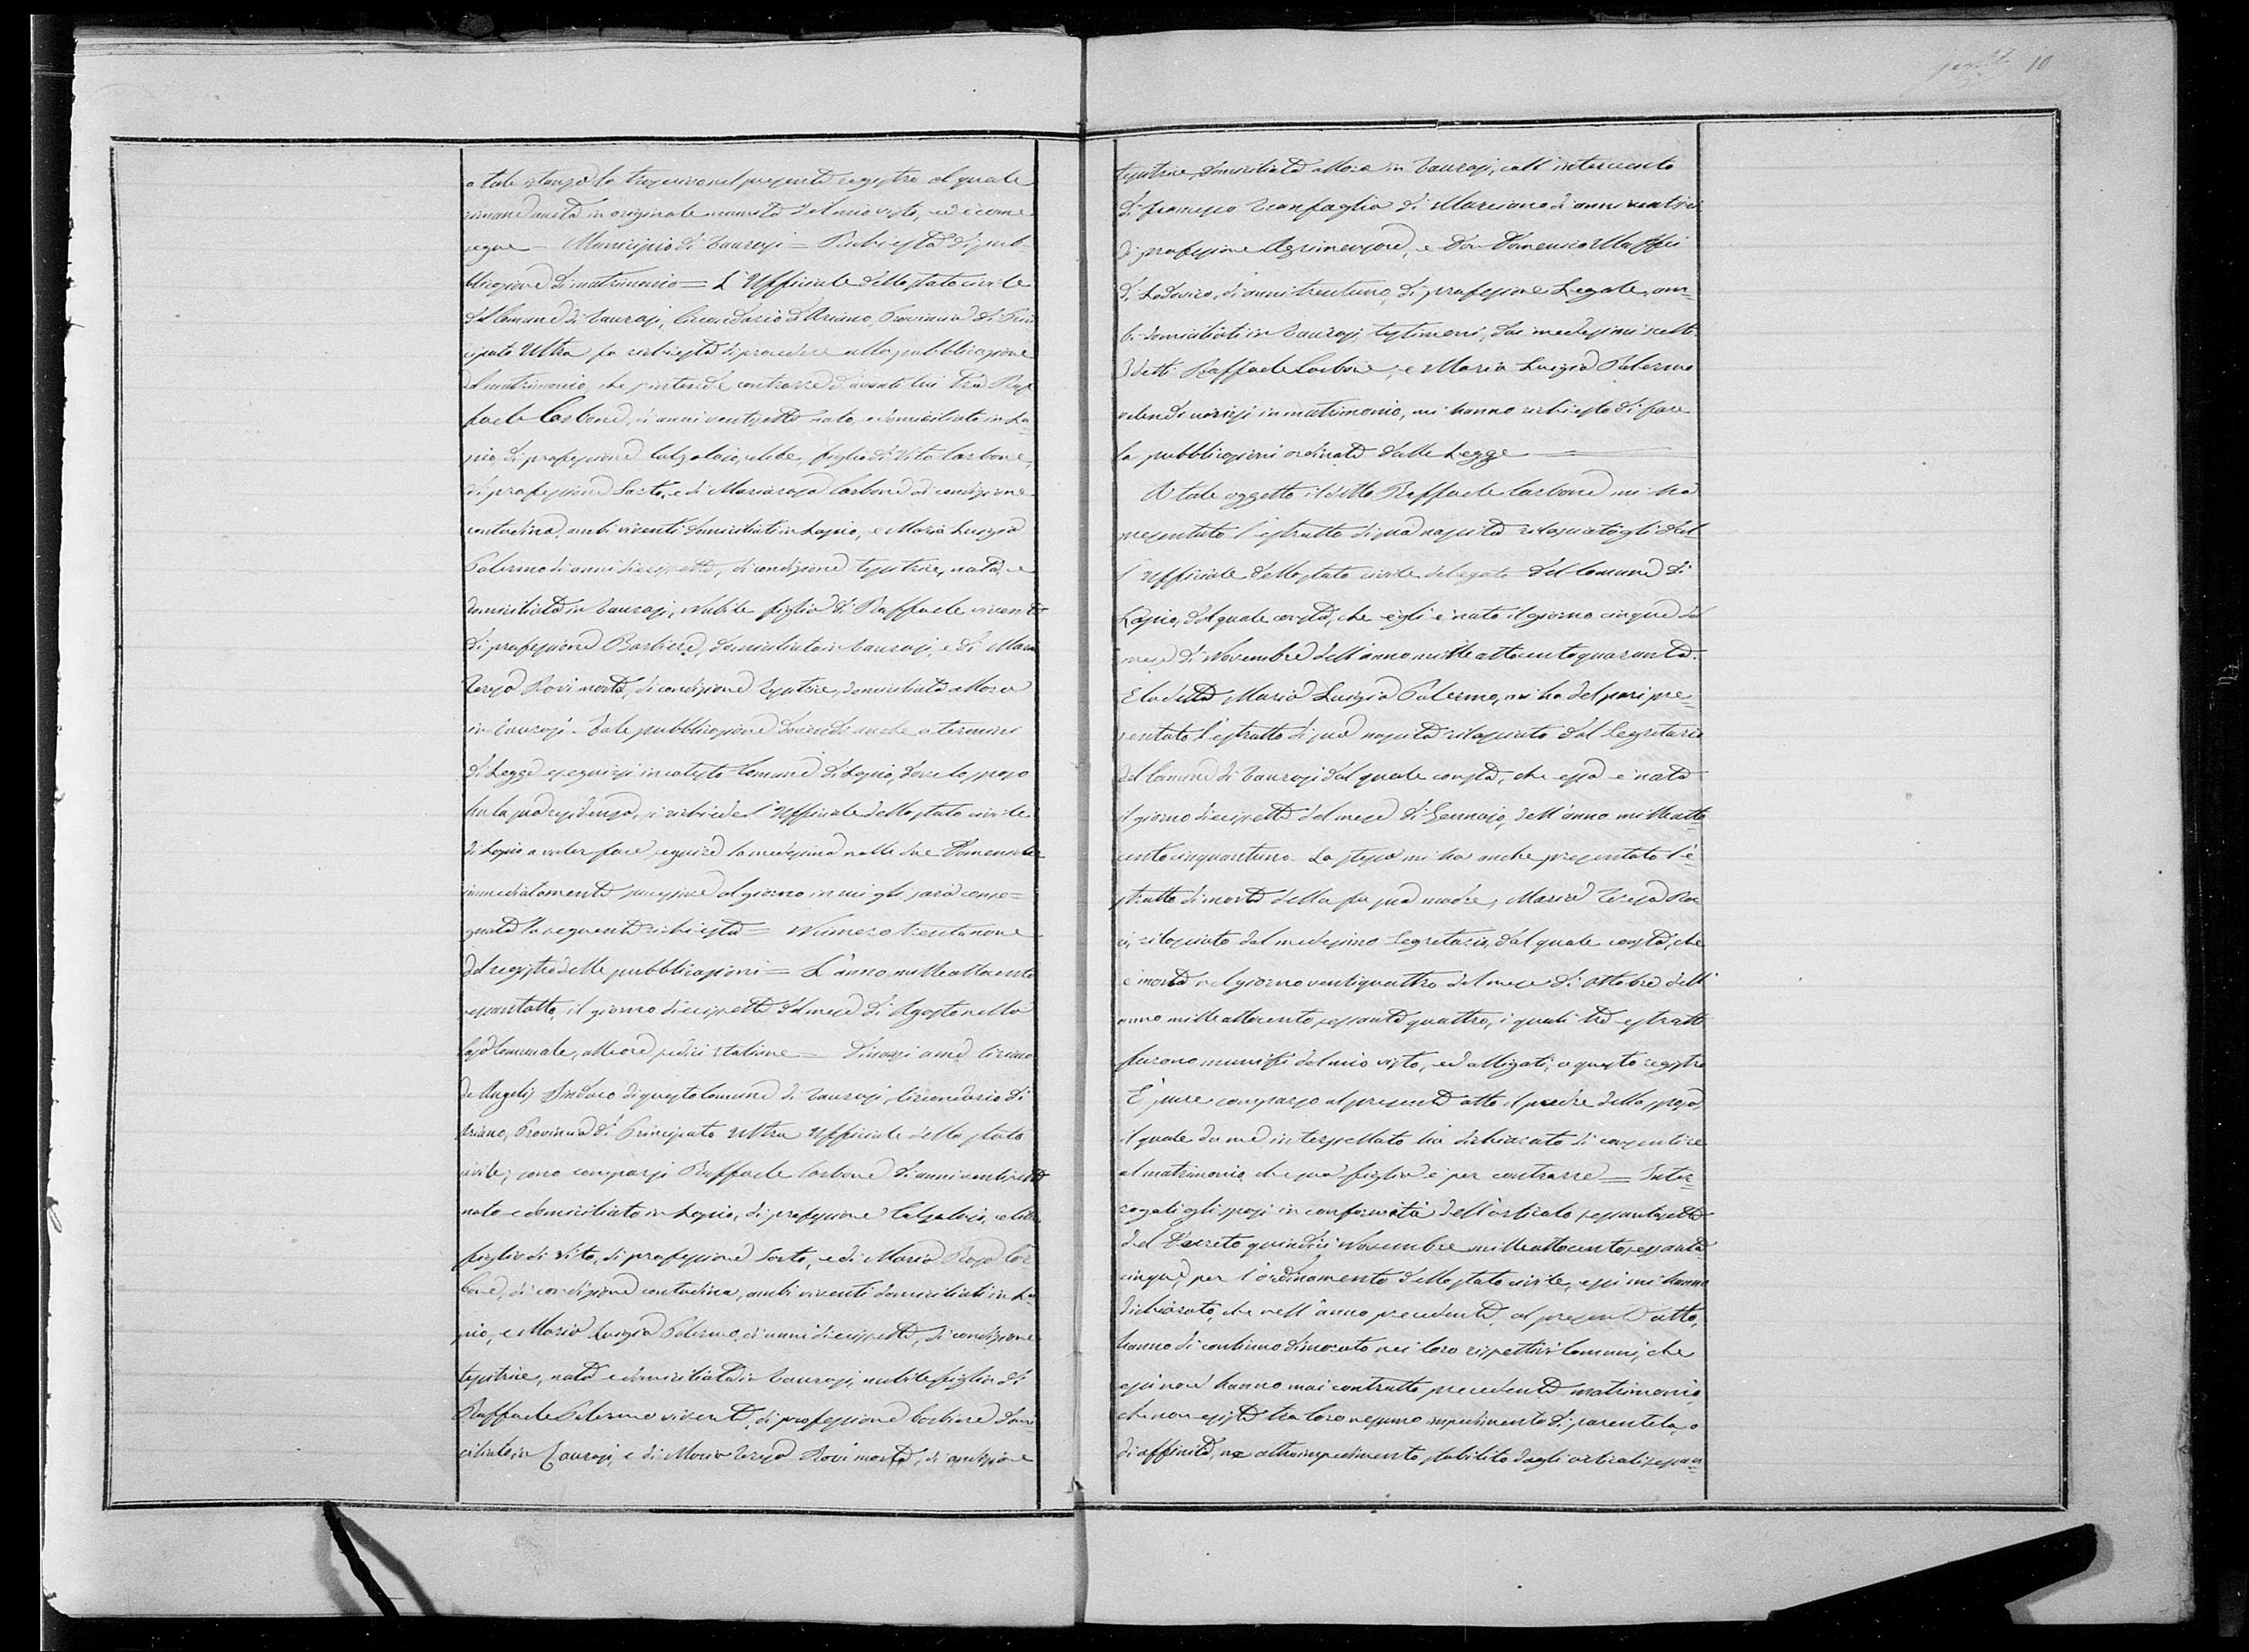 10
a tale istanza la trascrivo nel presente registro al quale
rimane unita in originale munita del mio visto, ed è come
segue = Municipio di Taurasi = Richiesta di pub-
blicazione di matrimonio = L'Uffiziale dello stato civile
del Comune di Taurasi, Circondario d'Ariano, Provincia di Prin
cipato Ultra fa richiesta di procedere alla pubblicazione
del matrimonio, che s'intende contrarre d'avanti lui tra Raf
faele Carbone, di anni ventisette nato, e domiciliato in La=
pio, di professione Calzolaio, celibe, figlio di Vito Carbone,
di professione Sarto, e di Mariarosa Carbone di condizione
contadina, ambi viventi domiciliati in Lapio, e Maria Luigia
Palermo di anni diecisette, di condizione tessitrice, nata, e
domiciliata in Taurasi, nubile figlia di Raffaele vivente
di professione Barbiere, domiciliato in Taurasi, e di Maria
Teresa Rovi morta, di condizione tessitrice, domiciliata allora
in Taurasi. Tale pubblicazione dovendo anche a termini
di Legge eseguirsi in cotesto Comune di Lapio, dove lo sposo
ha la sua residenza, si richiede l'Uffiziale dello stato civile
di Lapio a voler fare seguire la medesima nelle due Domeniche
immediatamente successive al giorno in cui gli sarà conse=
gnata la seguente richiesta = Numero trentanove
del registro delle pubblicazioni = L'anno milleottocento
sessantotto, il giorno diecisette del mese di Agosto nella
Casa Comunale, alle ore sedici italiane = Dinanzi a me
de Angelis Sindaco di questo Comune di Taurasi, Circondario di
Ariano, Provincia di Principato Ultra Uffiziale dello stato
civile, sono comparsi Raffaele Carbone di anni ventisette
nato e domiciliato in Lapio, di professione Calzolaio, celibe
figlio di Vito, di professione Sarto, e di Maria Rosa Car
bone, di condizione contadina, ambi viventi domiciliati in La=
pio, e Maria Luigia Palermo, di anni diecisette, di condizione
tessitrice, nata e domiciliata in Taurasi, nubile figlia di
Raffaele Palermo vivente, di professione barbiere domi
ciliato in Taurasi, e di Maria Teresa Rovi morta, di condizione
tessitrice, domiciliata allora in Taurasi, coll'intervento
di Francesco di Marciano di anni
di professione Agrimensore, e Don Domenico Maffei
di Lodovico, di anni trentuno, di professione Legale, am=
bi domiciliati in Taurasi, testimoni, dai medesimi scelti.
I detti Raffaele Carbone, e Maria Luigia Palermo
volendo unirsi in matrimonio, mi hanno richiesto di fare
la pubblicazioni ordinate dalla Legge =
A tale oggetto il detto Raffaele Carbone mi ha
presentato l'estratto di sua nascita rilasciatogli dal
l'Uffiziale dello stato civile delegato del Comune di
Lapio, dal quale consta, che egli è nato il giorno cinque del
mese di Novembre dell'anno milleottocentoquaranta.
E la detta Maria Luigia Palermo, mi ha del pari pre=
sentato l'estratto di sua nascita rilasciato dal Segretario
del Comune di Taurasi dal quale consta, che essa è nata
il giorno diecisette del mese di Gennajo, dell'anno milleotto=
centocinquantuno. La stessa mi ha anche presentato l'e=
stratto di morte della fu sua madre, Maria Teresa Ro
vi, rilasciato dal medesimo Segretario, dal quale consta, che
è morta nel giorno ventiquattro del mese di Ottobre dell'
anno milleottocentosessantaquattro, i quali tre estratti
furono muniti del mio visto, ed alligati, a questo registro
È pure comparso al presente atto il padre della sposa,
il quale da me interpellato ha dichiarato di consentire
al matrimonio, che sua figlia è per contrarre = Inter=
rogati gli sposi in conformità dell'articolo sessantasette
del Decreto quindici Novembre milleottocentosessanta
cinque, per l'ordinamento dello stato civile, essi mi hanno
dichiarato, che nell'anno precedente al presente atto,
hanno di continuo dimorato nei loro rispettivi Comuni, che
essi non hanno mai contratto precedente matrimonio,
che non esiste tra loro nessuno impedimento di parentela, o
di affinità, ne altro impedimento stabilito dagli articoli